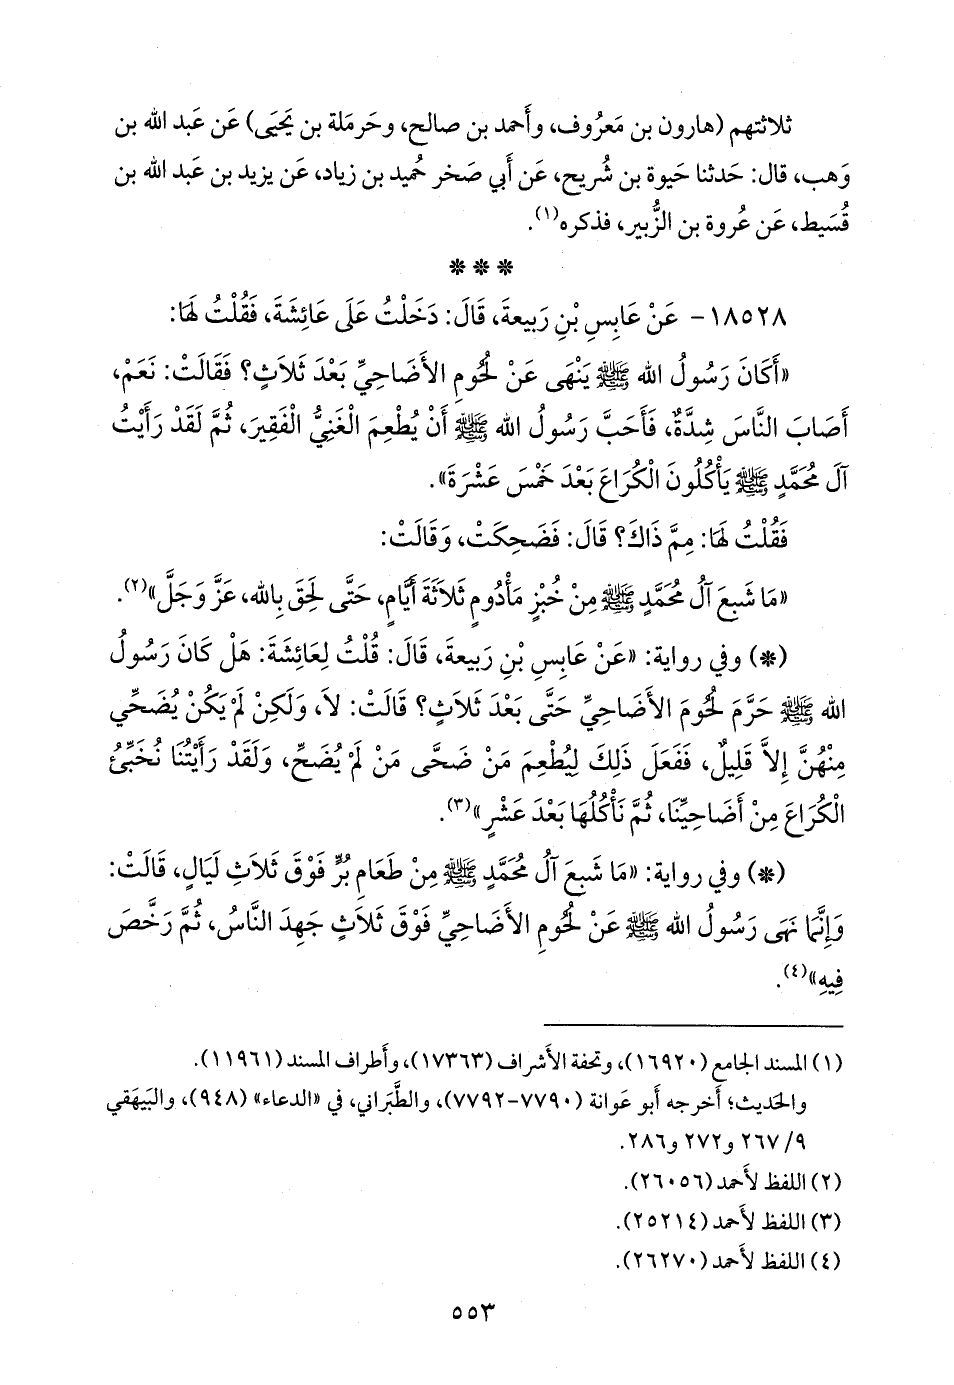 ثلاثتهم (هارون بن مَعرُوف، وأَحمد بن صالح، وحَرملة بن يَحيَى) عَن عَبد الله بن
وَهب، قال: حَدثنا حَيوة بن شُريح، عَن أَبي صَخر حُميد بن زياد، عَن يزيد بن عَبد الله بن
قُسَيط، عَن عُروة بن الزُّبير، فذكره(١).
* * *
١٨٥٢٨- عَنْ عَابِسِ بْنِ رَبِيعةَ، قَالَ: دَخَلْتُ عَلَى عَائِشَةَ، فَقُلْتُ لَهَا:
«أَكَانَ رَسُولُ الله ﷺ يَنْهَى عَنْ لُحُومِ الأَضَاحِيِّ بَعْدَ ثَلاَثٍ؟ فَقَالَتْ: نَعَمْ،
أَصَابَ النَّاسَ شِدَّةٌ، فَأَحَبَّ رَسُولُ الله ﷺ أَنْ يُطْعِمَ الْغَنِيُّ الْفَقِيرَ، ثُمَّ لَقَدْ رَأَيْتُ
آلَ مُحَمَّدٍ ﷺ يَأْكُلُونَ الْكُرَاعَ بَعْدَ خَمْسَ عَشْرَةَ».
فَقُلْتُ لَهَا: مِمَّ ذَاكَ؟ قَالَ: فَضَحِكَتْ، وَقَالَتْ:
«مَا شَبِعَ آلُ مُحَمَّدٍ ﷺ مِنْ خُبْزٍ مَأْدُومٍ ثَلاَثَةَ أَيَّامٍ، حَتَّى لَحِقَ بِالله، عَزَّ وَجَلَّ»(٢).
(*) وفي رواية: «عَنْ عَابِسِ بْنِ رَبِيعةَ، قَالَ: قُلْتُ لِعَائِشَةَ: هَلْ كَانَ رَسُولُ
الله ﷺ حَرَّمَ لُحُومَ الأَضَاحِيِّ حَتَّى بَعْدَ ثَلاَثٍ؟ قَالَتْ: لاَ، وَلَكِنْ لَمْ يَكُنْ يُضَحِّي
مِنْهُنَّ إِلاَّ قَلِيلٌ، فَفَعَلَ ذَلِكَ لِيُطْعِمَ مَنْ ضَحَّى مَنْ لَمْ يُضَحِّ، وَلَقَدْ رَأَيْتُنَا نُخَبِّئُ
الْكُرَاعَ مِنْ أَضَاحِيِّنَا، ثُمَّ نَأْكُلُهَا بَعْدَ عَشْرٍ»(٣).
(*) وفي رواية: «مَا شَبِعَ آلُ مُحَمَّدٍ ﷺ مِنْ طَعَامِ بُرٍّ فَوْقَ ثَلاَثِ لَيَالٍ، قَالَتْ:
وَإِنَّمَا نَهَى رَسُولُ الله ﷺ عَنْ لُحُومِ الأَضَاحِيِّ فَوْقَ ثَلاَثٍ جَهِدَ النَّاسُ، ثُمَّ رَخَّصَ
فِيهِ»(٤).
(١) المسند الجامع (١٦٩٢٠)، وتحفة الأَشراف (١٧٣٦٣)، وأَطراف المسند (١١٩٦١).
والحَديث؛ أَخرجه أَبو عَوانة (٧٧٩٠-٧٧٩٢)، والطَّبَراني، في «الدعاء» (٩٤٨)، والبَيهَقي
٩/ ٢٦٧ و٢٧٢ و٢٨٦.
(٢) اللفظ لأَحمد (٢٦٠٥٦).
(٣) اللفظ لأَحمد (٢٥٢١٤).
(٤) اللفظ لأَحمد (٢٦٢٧٠).
٥٥٣